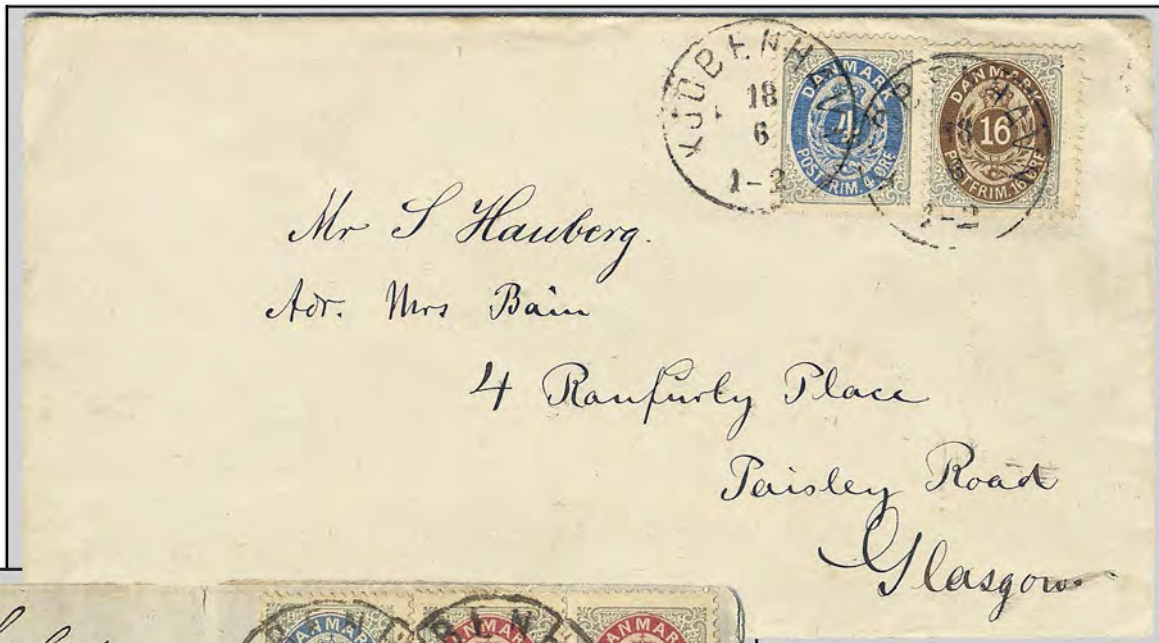 KJØBENHAVN
18
6
1-2
DANMARK
4
POSTFRIM. 4 ØRE
DANMARK
16
POSTFRIM. 16 ØRE
1-2
Mr S Hauberg.
Adr. Mrs Bain
4 Ranfurly Place
Paisley Road
Glasgow
DANMARK
DANMARK
DANMARK